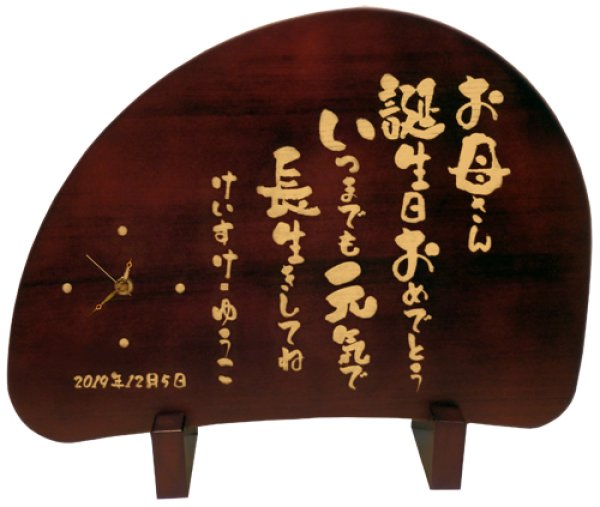 お母さん
誕生日おめでとう
いつまでも元気で
長生きしてね
けいすけ・ゆうこ
2019年12月5日